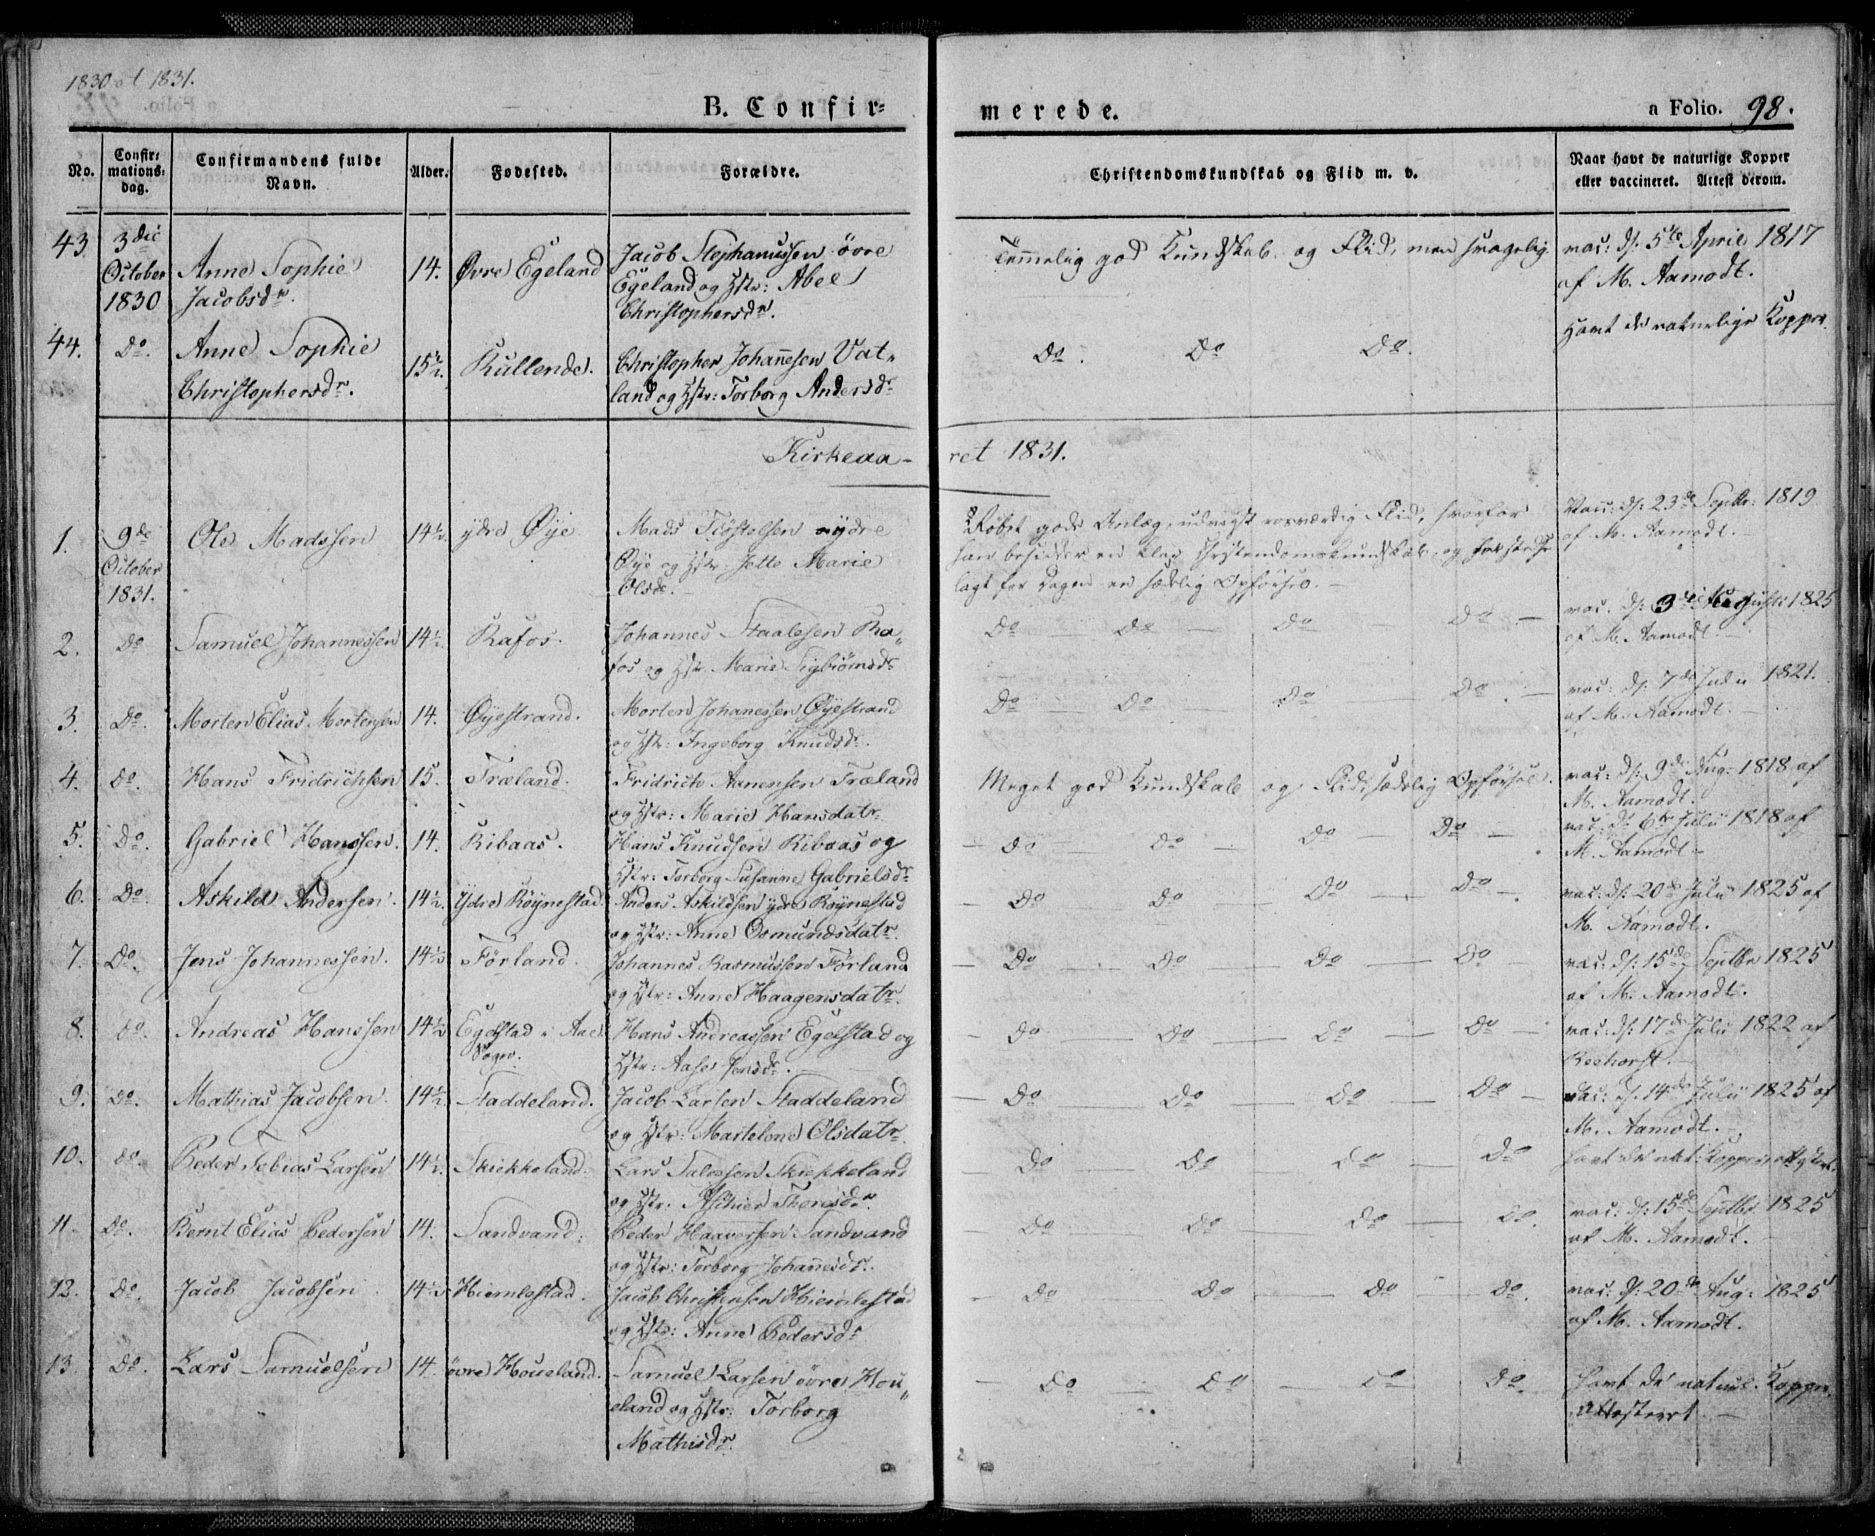 1830 et 1831.
B. Confir=
merede.
a Folio. 98.
No.
Confir=
mations=
dag.
Confirmandens fulde
Navn.
Alder.
Fødested.
Forældre.
Christendomskundskab og Flid m. v.
Naar havt de naturlige Kopper
eller vaccineret. Attest derom.
43. 3die October 1830 Anne Sophie Jacobsdr. 14. Øvre Egeland Jacob Stephanussen øvre
Egeland og Hstr: Abel
Christophersdr.
Temmelig god Kundskab og Flid, men svagelig.
vac: d: 5te April 1817
af M. Aamodt.
44. Do. Anne Sophie Christophersdr. 15½. Kullende. Christopher Johannesen Vat-
land og Hstr: Torborg Andersdr
Do. Do Do.
Havt de naturlige Kopper.
Kirkeaa-
ret 1831.
1. 9de October 1831. Ole Madssen 14½. ydre Øye Mads Tiostolsen ydre
Øye og Hstr: Jette Marie
Olsdr.
gode Anlæg, udviist Flid, hvorfor
han besidder en klar Christendomskundskab, og
lagt for Dagen en sædelig Opførsel.
Vacc: d: 23de Septbr: 1819
af M. Aamodt.
2. Do Samuel Johannessen 14½. Rafos. Johannes Staalesen Ra-
fos og Hstr. Marie Sigbiørnsdr
Do Do Do Do
vac. d: 3die Augusti 1825
af M. Aamodt.
3. Do. Morten Elias Mortensen 14. Øyestrand. Morten Johanessen Øyestrand
og Hstr: Ingeborg Knudsdr.
Do Do Do Do
vac: d: 7de Julii 1821.
af M. Aamodt.
4. Do. Hans Fridrichsen 15. Træland. Fridrich Aanensen Træland
og Hstr: Marie Hansdatr.
Meget god Kundskab og Flid, sædelig Opførsel.
vac: d: 9de Aug: 1818 af
M. Aamodt.
5. Do. Gabriel Hanssen. 14. Ribaas. Hans Knudsen Ribaas og
Hstr: Torborg Susanne Gabrielsdr
Do Do Do Do
vac: d: 6te Julii 1818 af
M. Aamodt
6. Do. Askild Andersen. 14½. Ydre Røynestad Anders Askildsen ydre Røynestad
og Hstr: Anne Osmundsdatr.
Do Do Do Do
vac: d: 20de Julii 1825 af
M. Aamodt.
7. Do. Jens Johannessen. 14½ Førland. Johannes Rasmussen Førland
og Hstr: Anne Haagensdatr.
Do Do Do Do
vac: d: 15de Septbr 1825
af M. Aamodt.
8. Do. Andreas Hanssen 14½ Egelstad i Aae Sogn. Hans Andreassen Egelstad og
Hstr: Aase Jensdr.
Do Do Do Do
vac: d: 17de Julii 1822 af
Reehorst.
9. Do. Mathias Jacobsen. 14½. Staddeland. Jacob Larsen Staddeland
og Hstr: Martelene Olsdatr
Do Do Do Do
vac: d: 14de Julii 1825 af
M. Aamodt.
10. Do. Peder Tobias Larsen 14½. Skiekkeland. Lars Salvesen
og Hstr: Thoresdr.
Do Do Do Do
havt de nat: Kopper
11. Do. Bernt Elias Pedersen 14. Sandvand. Peder Haaversen Sandvand
og Hstr: Torborg Johannesdr.
Do Do Do Do.
vac: d: 15de Septbr 1825
af M. Aamodt.
12. Do. Jacob Jacobsen 14½ Hiemlestad. Jacob Christensen Hiemlestad
og Hstr: Anne Pedersdr
Do Do Do Do.
vac: d: 20de Aug: 1825
af M. Aamodt.
13. Do. Lars Samuelsen 14. øvre Houeland. Samuel Larsen øvre Hou-
eland og Hstr: Torborg
Mathisdr.
Do Do Do Do.
havt de naturl. Kopper.
Attesteret.